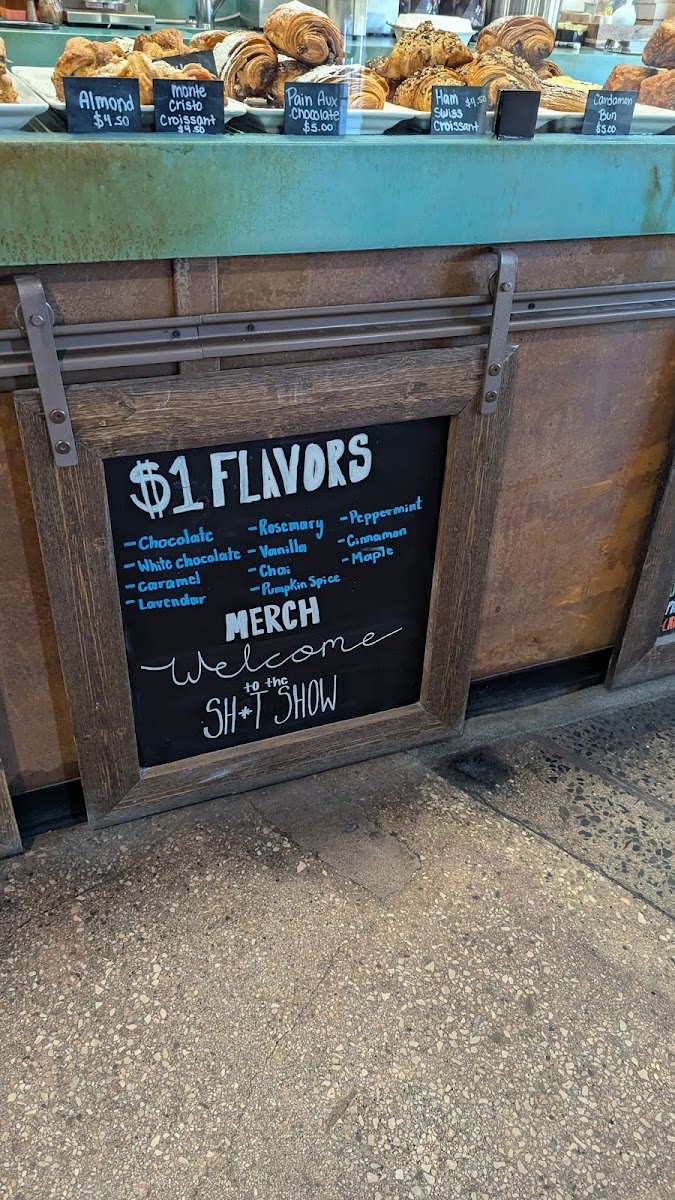 Almond
$4.50
Monte
Cristo
Croissant
$4.50
Pain Aux
Chocolate
$5.00
Ham $4.50
Swiss
Croissant
Cardamon
Bun
$5.00
$1 FLAVORS
- Chocolate
- White chocolate
- Caramel
- Lavendar
- Rosemary
- Vanilla
- Chai
- Pumpkin Spice
- Peppermint
- Cinnamon
- Maple
MERCH
Welcome
to the
SH*T SHOW